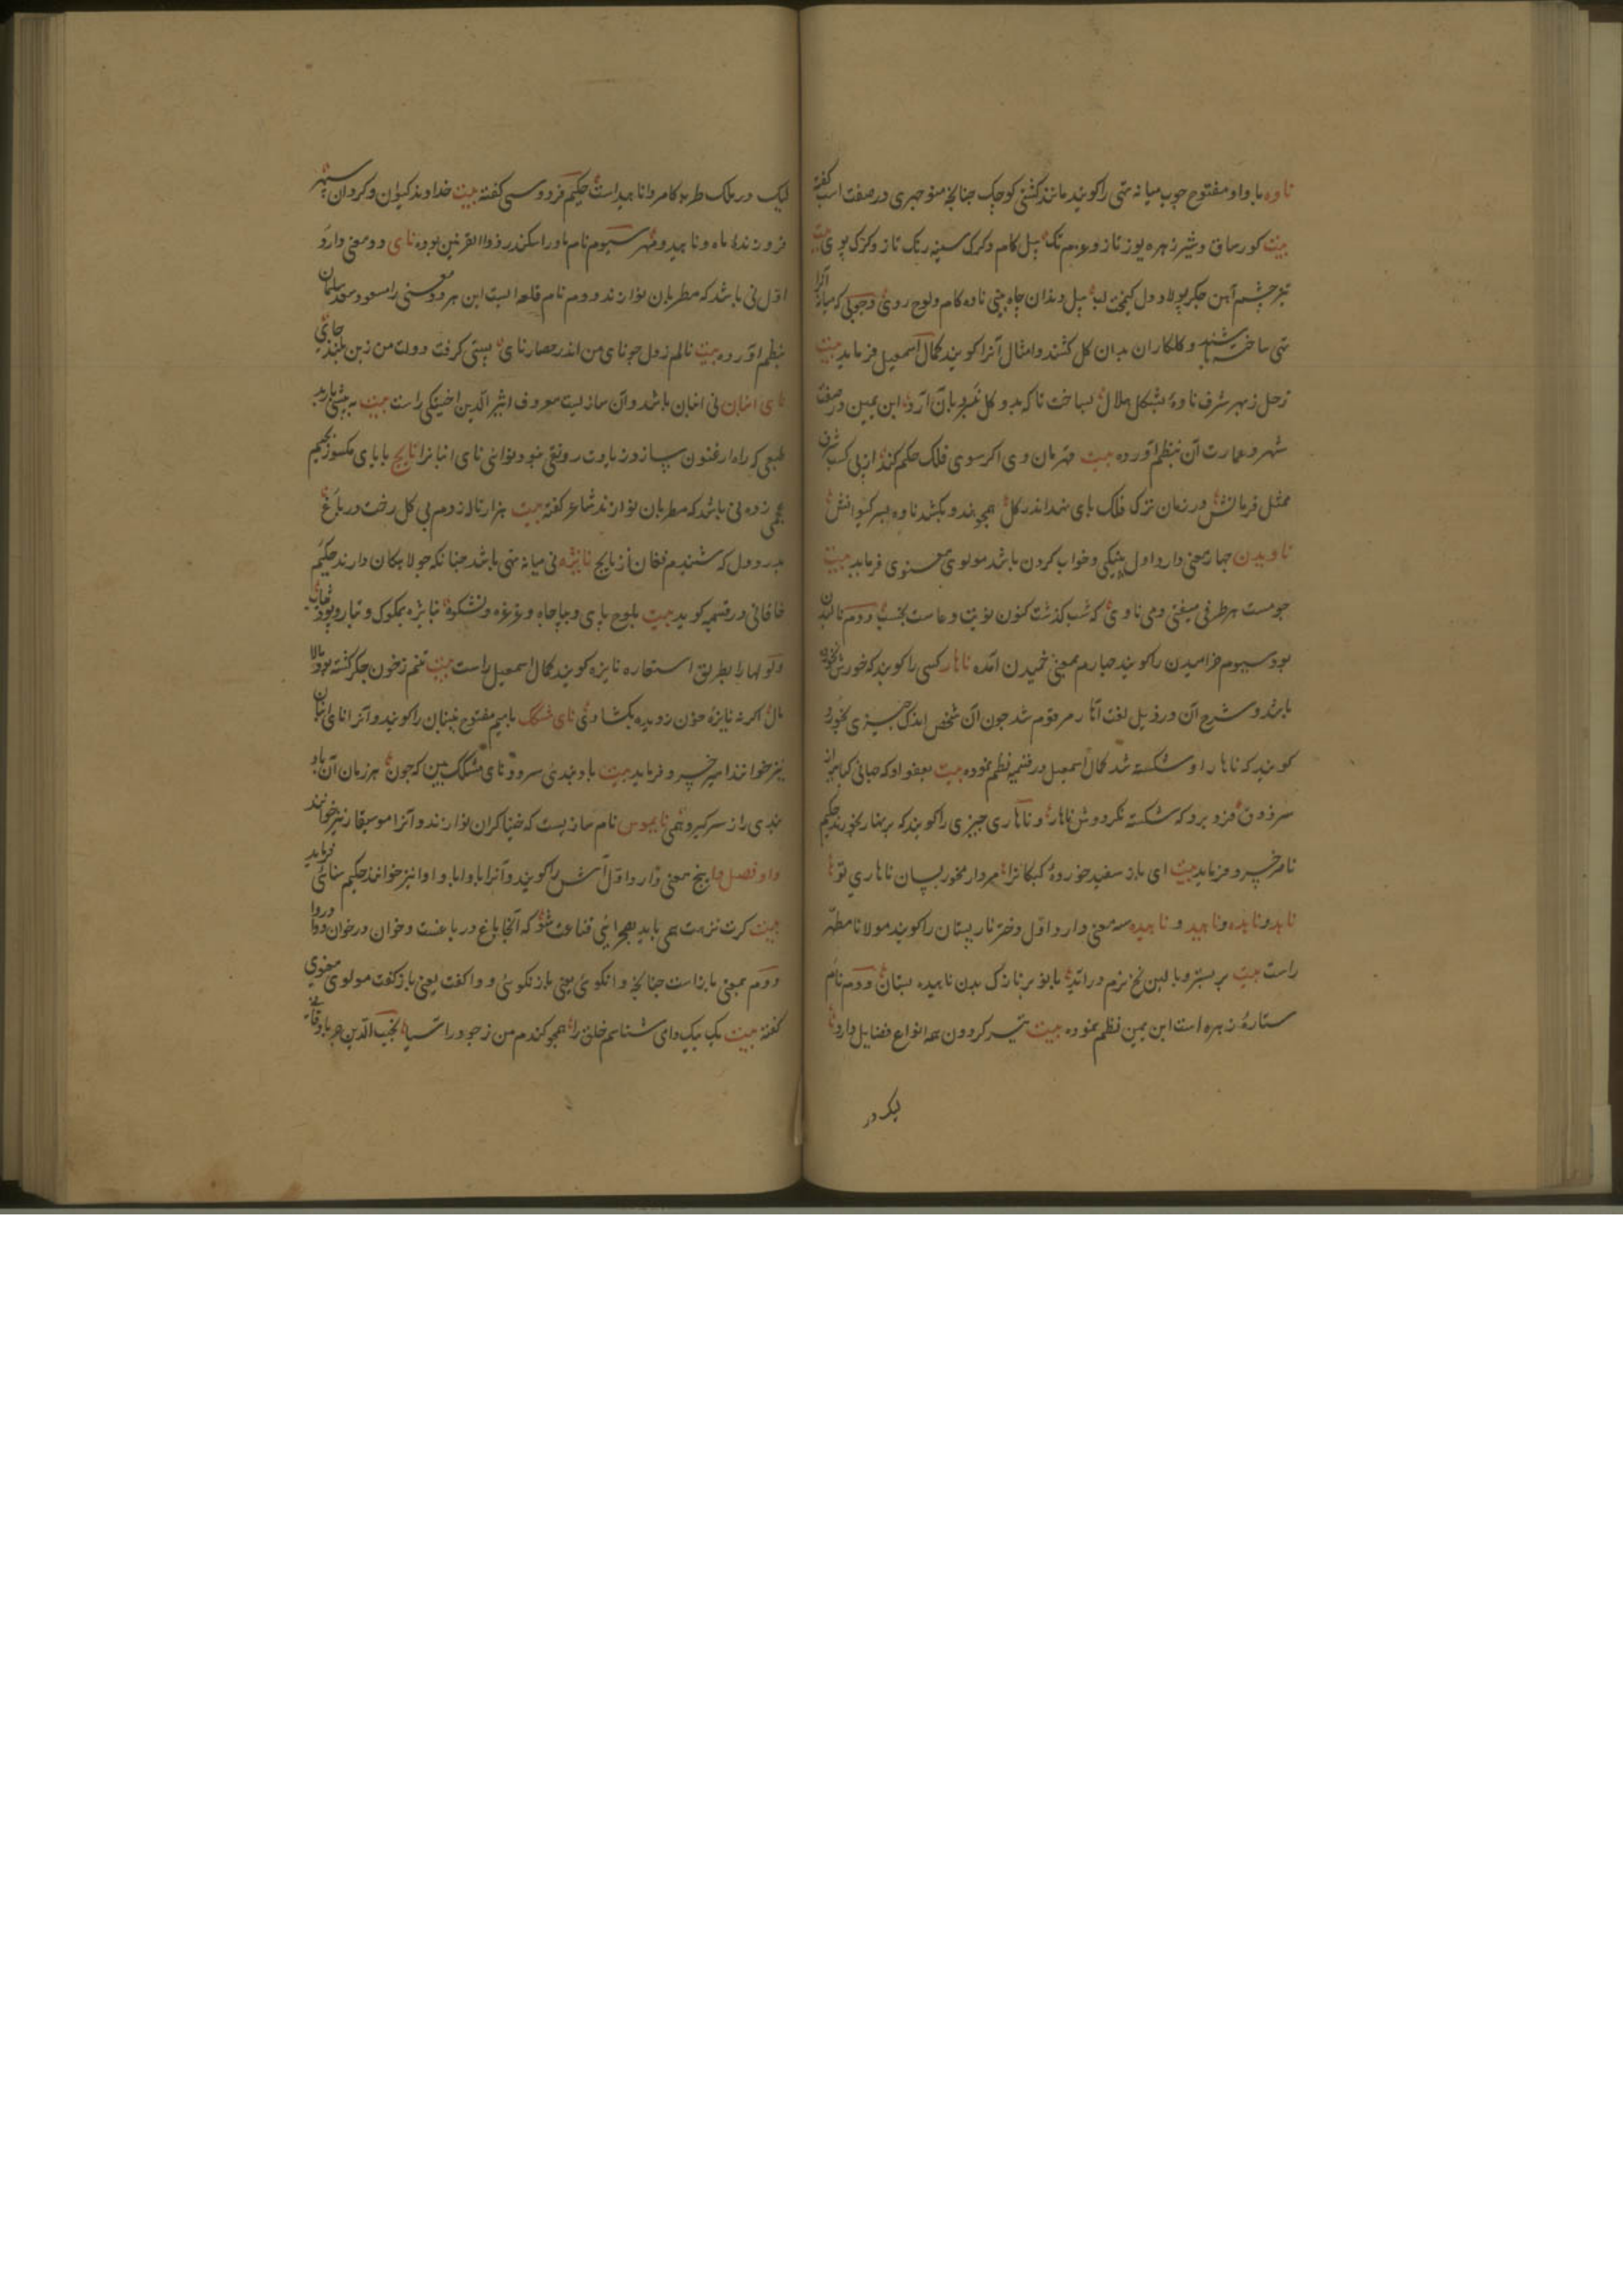 ناوه با واو مفتوح چوب میانه تهی را کویند مانند کشتی کوچک چنانچه منوچهری در صفت اسب کفته
بیت کور ساق و شیر زهره یوز تاز و غرم تک پیل کام و کرک سینه رنک تاز و کرک پوی بیت
تیز چشم آهن جکر پولاد دل کیمخت لب پیل دندان چاه بینی ناوه کام و لوح روی و چوبی که میانه آنرا
تهی ساخته باشند و کلکاران بدان کل کشند و امثال آنرا کویند کمال اسمعیل فرماید بیت
زحل ز بهر شرف ناوه بشکل هلال بساخت تا که بدو کل بر آن آرد ابن یمین در صفت
شهر و عمارت آن بنظم آورده بیت قهرمان وی اکر سوی فلک حکم کند از پی کسب شرف
ممثل فرمانش در زمان ترک فلک پای نهد اندر کل همچو هندو بکشد ناوه بسر کیوانش
ناویدن چهار معنی دارد اول پینکی و خواب کردن باشد مولوی معنوی فرماید بیت
چو مست هر طرفی میفتی و می ناوی که شب کذشت کنون نوبت دعاست مخسب دوم نالیدن
بود سیوم خرامیدن را کویند چهارم بمعنی خمیدن آمده ناهار کسی را کویند که خورش نخورده
باشد و شرح آن در ذیل لغت آهار مرقوم شد چون آن شخص اندک چیزی بخورد
کویند که ناهار او شکسته شد کمال اسمعیل در قسمیه نظم نموده بیت بعفو او که جهانی کباير از
سر ذوق فرو برد که شکسته نکردوش ناهار و ناهاری چیزی را کویند که بر نهار بخورند حکیم
ناصر خسرو فرماید بیت ای باز سفید خورده کبکانرا مردار مخور بسان ناهاری تو
ناهد و ناهده و ناهید و ناهیده سه معنی دارد اول دختر نار پستان را کویند مولانا مطهر
راست بیت بر بستر و بالین نخ نرم در آید با نو بر نازک بدن ناهیده پستان دوم نام
ستاره زهره است ابن یمین نظم نموده بیت تیر کردون همه انواع فضایل دارد
لیک در
لیک در ملک طرب کامروا ناهید است حکیم فردوسی کفته بیت خداوند کیوان و کردان سپهر
فروزنده ماه و ناهید و مهر سیوم نام مادر اسکندر ذوالقرنین بوده نای دو معنی دارد
اول نی باشد که مطربان نوازند دوم نام قلعه ایست این هر دو معنی را مسعود سعد سلمان
بنظم آورده بیت نالم ز دل چو نای من اندر حصار نای پستی کرفت دولت من زین بلند جای
نای انبان نی انبان باشد و آن سازیست معروف اثیر الدین اخسیکتی راست بیت به پیش باربد
طبعی که راه ارغنون سازد زیادت رونقی نبود نوای نای انبانرا نایچ با یای مکسور بجیم
عجمی زده نی باشد که مطربان نوازند شاعر کفته بیت هزار ناله زدم بی کل رخت در باغ
بدرد دل که شنیدم فغان ز نایچ نایژه نی میانه تهی باشد چنانکه جولاهکان دارند حکیم
خاقانی در قسمیه کوید بیت بلوح پای و بپاچاه و غرغره و نشکوه بنایژه بمکوک و بتار و پود ثیاب
و لولها را بطریق استعاره نایزه کویند کمال اسمعیل راست بیت تنم ز خون جکر کشته بود مالا
مال اکر نه نایزه خون ز دیده بکشادی نای مشک با میم مفتوح نی انبان را کویند و آنرا نای انبان
نیز خوانند امیر خسرو فرماید بیت باد بندی سرود نای مشکک بین که چون هر زمان آن باد
بندی را ز سر کیرد همی نایموس نام سازیست که خنیاکران نوازند و آنرا موسیقار نیز خوانند
واو فصل وا پنج معنی دارد اول آش را کویند و آنرا با و ابا و اوا نیز خوانند حکیم سنائی فرماید
بیت کرت نزهت همی باید بصحرای قناعت شو که آنجا باغ در باغست و خوان در خوان و وا در وا
دوم بمعنی باز است چنانچه وا نکوئی یعنی باز نکوئی و وا کفت یعنی باز کفت مولوی معنوی
کفته بیت یک بیک وا می شناسم خلق را همچو کندم من ز جو در آسیا نجیب الدین جربادقانی